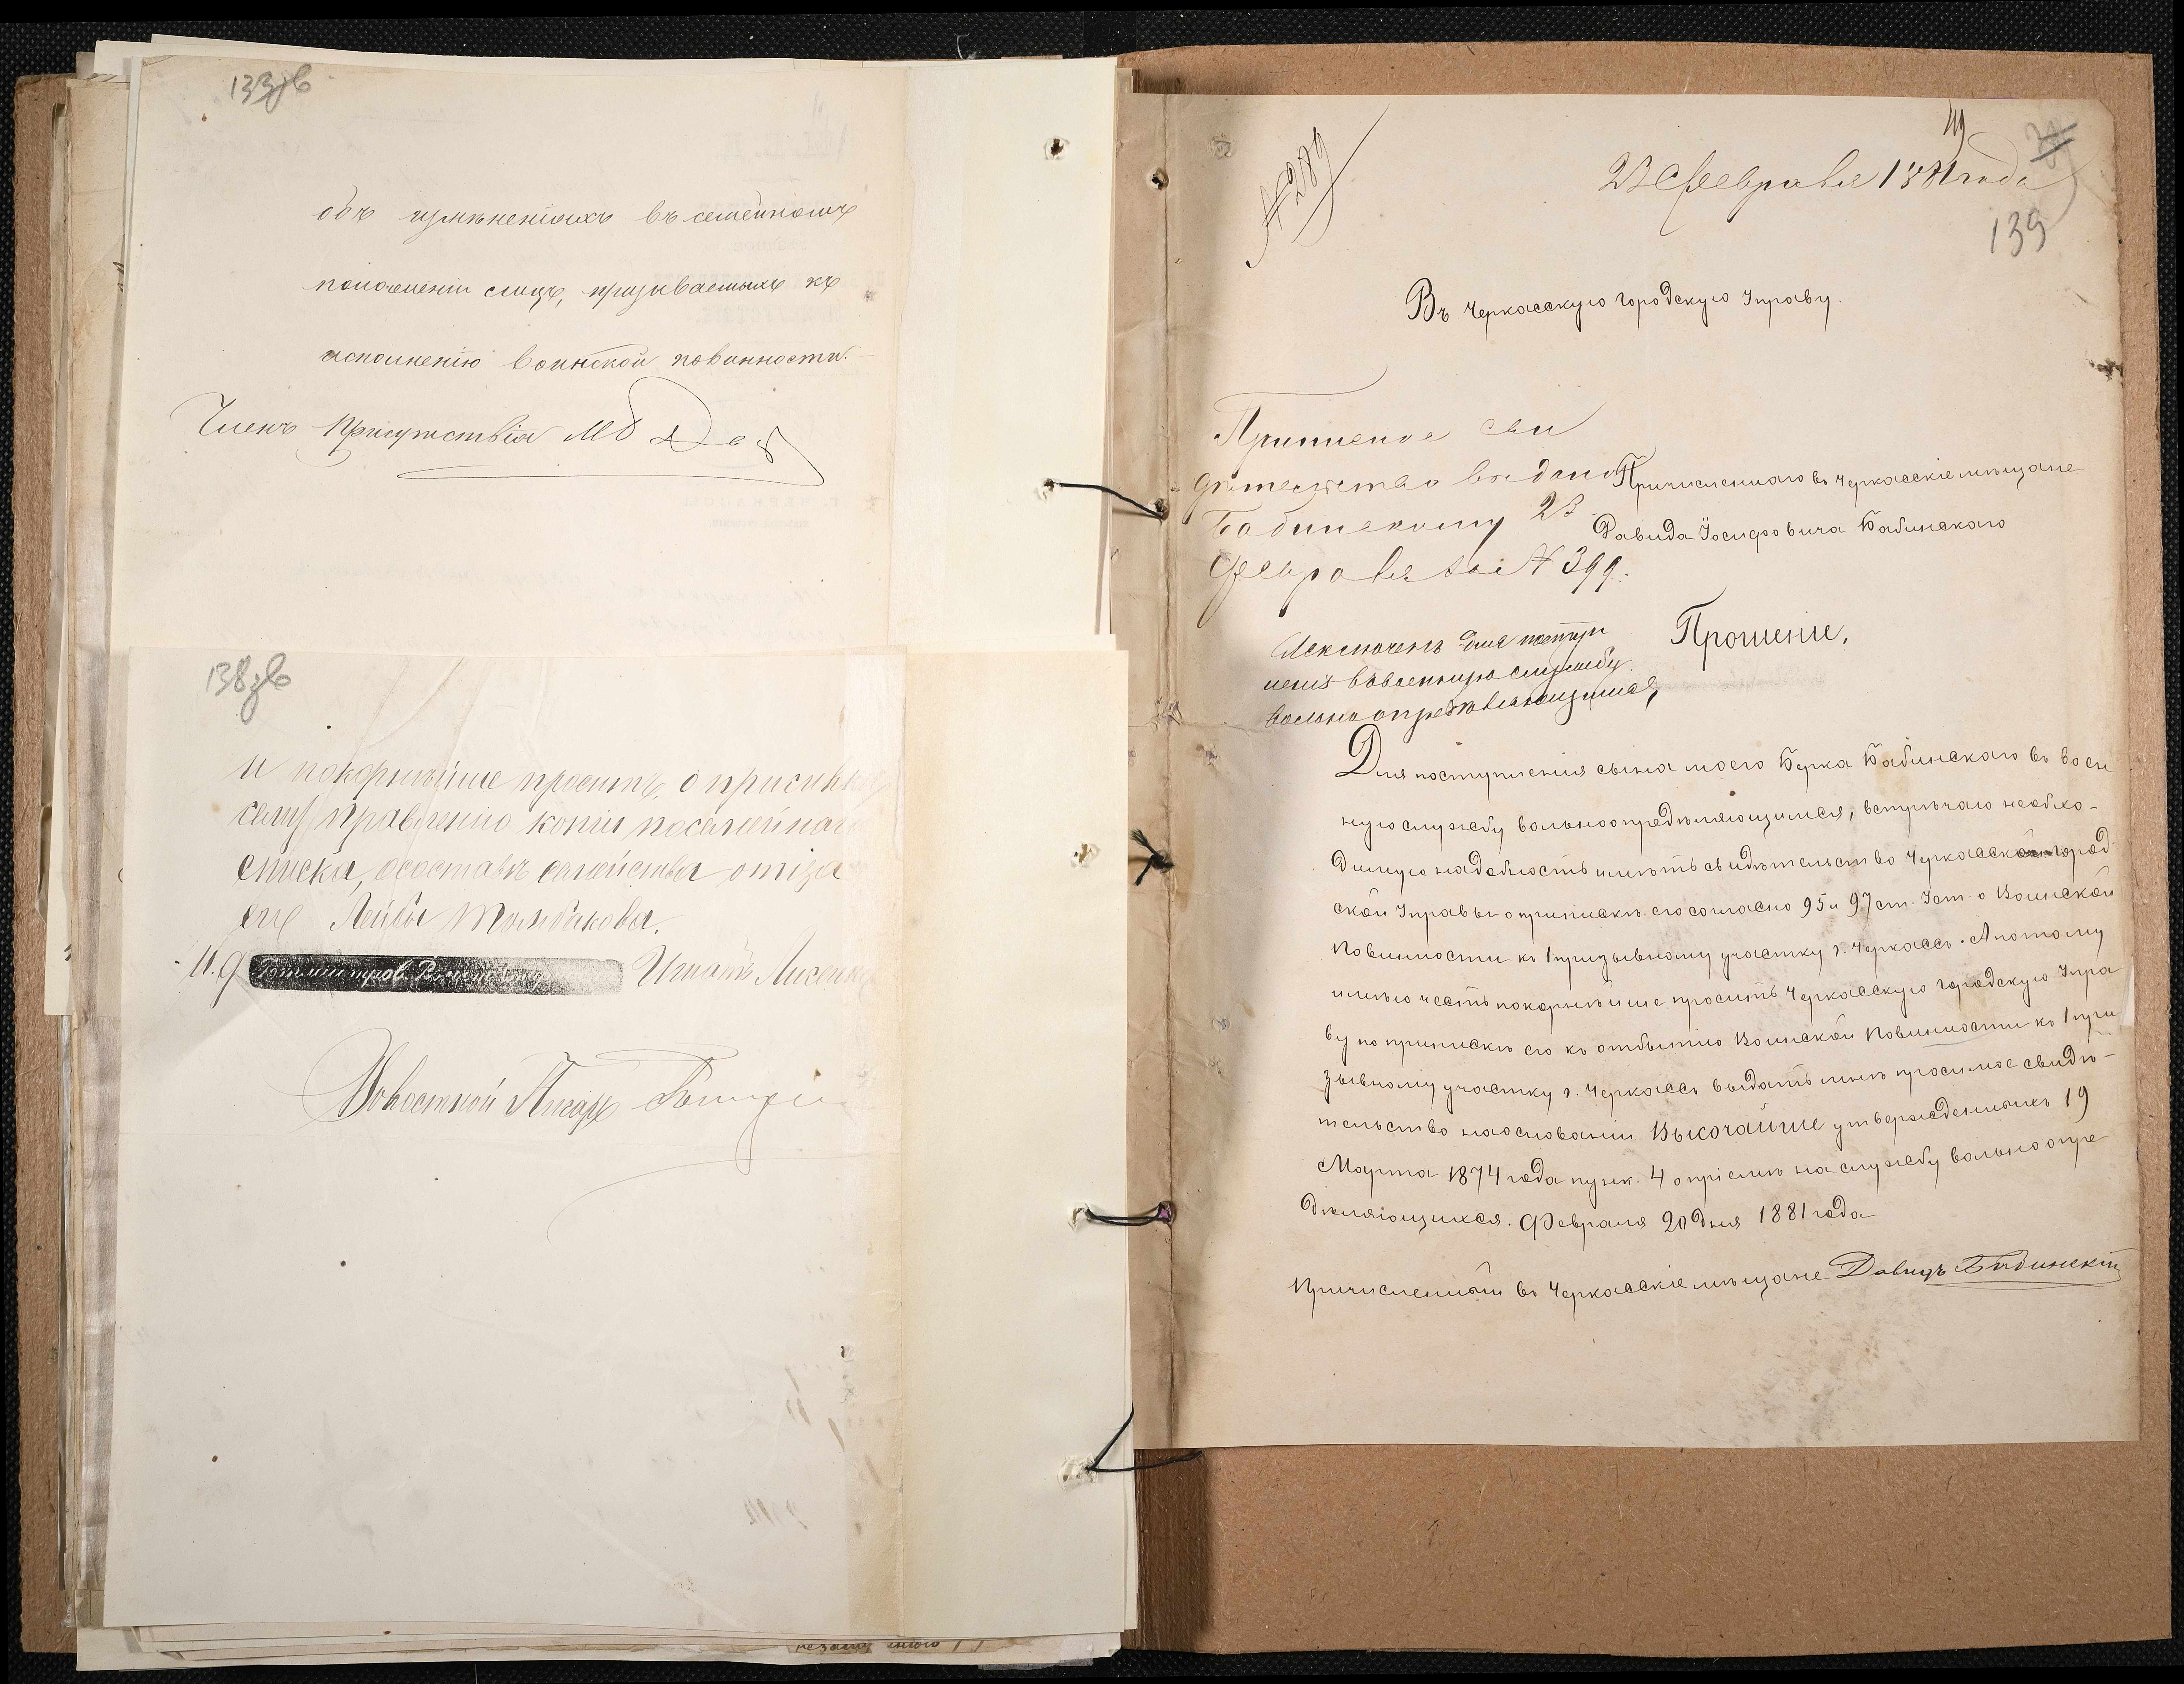 133зв
объ измѣненіяхъ въ семейномъ
положеніи лицъ, призываемыхъ къ
исполненію воинской повинности.
Членъ Присутствія
138зв
и покорнѣйше просить, о присылкѣ
сему правленію копіи посемейнаго
списка, о составѣ семейства отца
его Лейбы
И. д. Игнатъ Лисенко
Волостной Писарь
№ 289
23 Февраля 1881 года
139
Въ Черкасскую городскую Управу.
Приписное сви
дѣтельство выдано
Бабинскому 23
Февраля за № 399.
Причисленнаго въ Черкасскіе мѣщане
Давида Іосифовича Бабинскаго
Исключенъ для поступ
ленія въ военную службу
вольноопредѣляющимся,
Прошеніе,
Для поступленія сына моего Берка Бабинскаго въ воен
ную службу вольноопредѣляющимся, встрѣчаю необхо-
димую надобность имѣть свидѣтельство Черкасской город
ской Управы о припискѣ его согласно 95 и 97 ст. Уст. о Воинской
Повинности къ 1 призывному участку г. Черкассъ. А потому
имѣю честь покорнѣйше просить Черкасскую городскую Упра
ву по припискѣ его къ отбытію Воинской Повинности къ 1 при
зывному участку г. Черкассъ выдать мнѣ просимое свидѣ-
тельство на основаніи Высочайше утвержденныхъ 19
Марта 1874 года пунк. 4 о пріемѣ на службу вольноопре
дѣляющихся. Февраля 20 дня 1881 года
Причисленный въ Черкасскіе мѣщане Давидъ Бабинскій